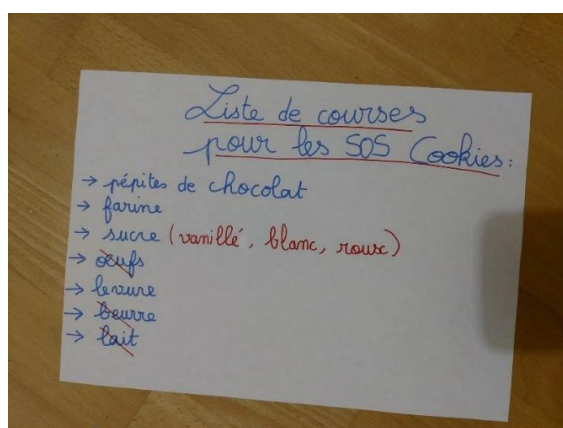 Liste de courses
pour les SOS Cookies :
→ pépites de chocolat
→ farine
→ sucre (vanillé, blanc, roux)
→ œufs
→ levure
→ beurre
→ lait